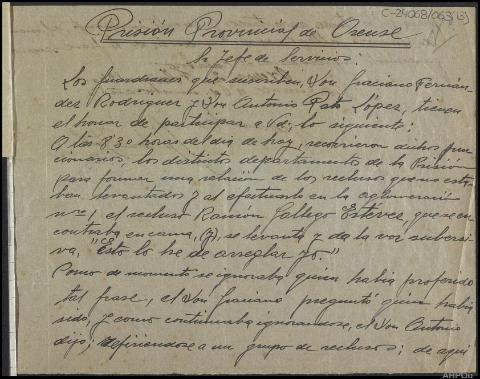 C-24068/063(3)
Prisión Provincial de Orense
Sr Jefe de Servicios:
Los guardianes que suscriben, Don Graciano Fernán-
dez Rodríguez y Don Antonio Pato López, tienen
el honor de participar a Vd; lo siguiente:
A las 8'30 horas del día de hoy, recorrieron dichos fun-
cionarios, los distintos departamentos de la Prisión
para formar una relación de los reclusos que no esta-
ban levantados y al efectuarlo en la aglomeración
nº 1, el recluso Ramón Gallego Estévez, que se en-
contraba en cama, (y), se levanta y da la voz subersi-
va, "Esto lo he de arreglar yo."
Como de momento se ignoraba quien había proferido
tal frase, el Don Graciano preguntó quien había
sido, y como continuaba ignorandose, el Don Antonio
dijo; refiriendose a un grupo de reclusos; de aqui
AHPOu